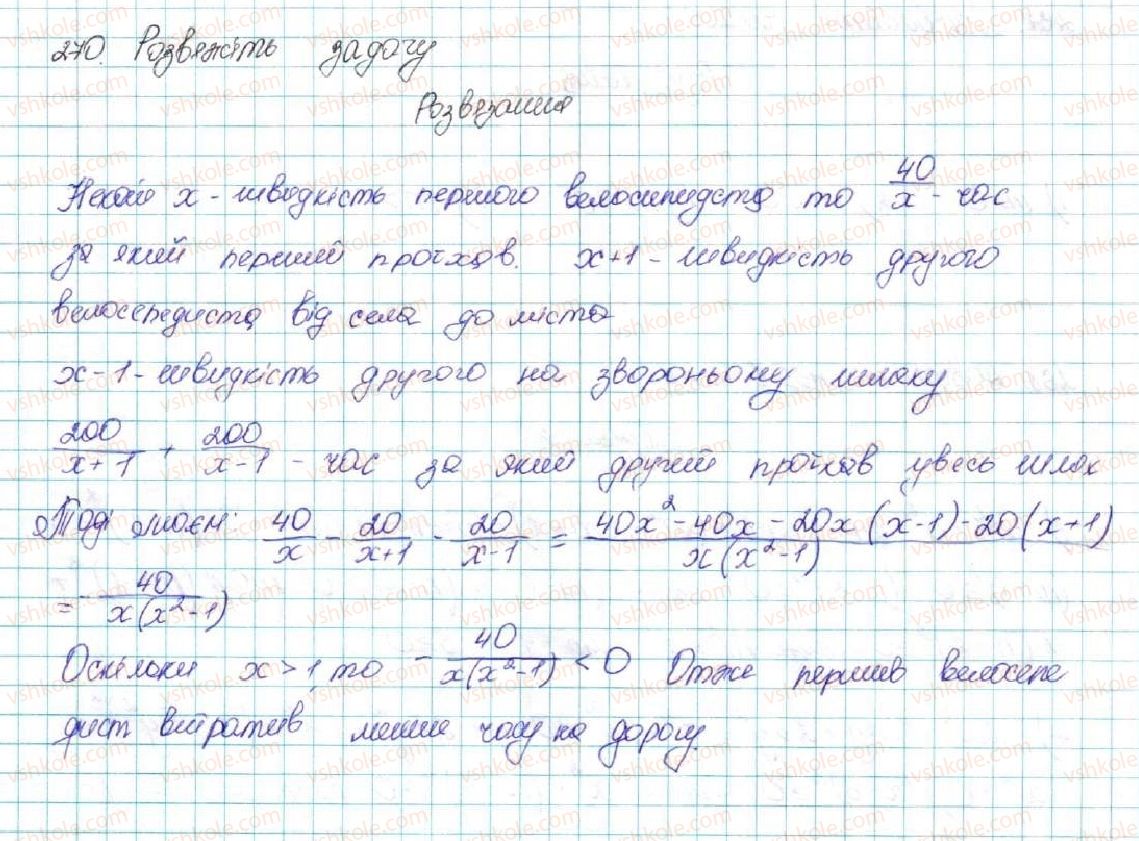 270. Розвяжіть задачу
Розвязання
Нехай x - швидкість першого велосипидста то 40/x - час
за який перший проїхав. x+1 - швидкість другого
велосепедиста від села до міста
x-1 - швидкість другого на звороньому шляху
200/(x+1) + 200/(x-1) - час за який другий проїхав увесь шлях
Тоді маєм: 40/x - 20/(x+1) - 20/(x-1) = (40x² - 40x - 20x(x-1) - 20(x+1))/(x(x²-1))
= - 40/(x(x²-1))
Оскільки x > 1, то - 40/(x(x²-1)) < 0 Отже перший велосепе
дист витратив менше часу на дорогу.